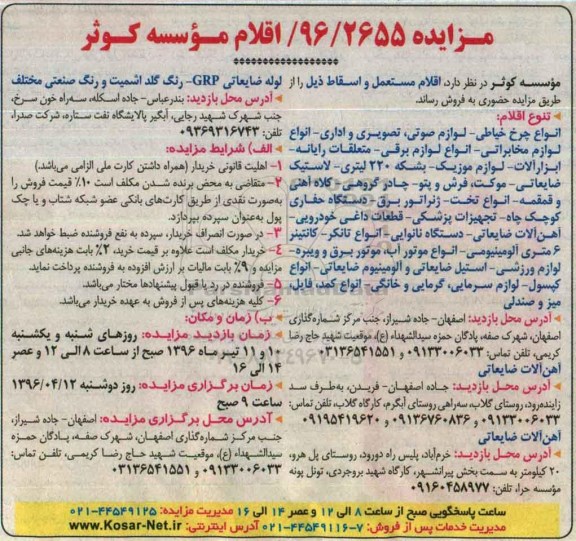 مزایده ۹۶/۲۶۵۵/ اقلام مؤسسه کوثر
مؤسسه کوثر در نظر دارد، اقلام مستعمل و اسقاط ذیل را از
طریق مزایده حضوری به فروش رساند.
تنوع اقلام:
انواع چرخ خیاطی- لوازم صوتی، تصویری و اداری- انواع
لوازم مخابراتی- انواع لوازم برقی- متعلقات رایانه-
ابزارآلات- لوازم موزیک- بشکه ۲۲۰ لیتری- لاستیک
ضایعاتی- موکت، فرش و پتو- چادر گروهی- کلاه آهنی
و قمقمه- انواع تخت- ژنراتور برق- دستگاه حفاری
کوچک چاه- تجهیزات پزشکی- قطعات داغی خودرویی-
آهن‌آلات ضایعاتی- دستگاه نانوایی- انواع تانکر- کانتینر
۶ متری آلومینیومی- انواع موتور آب، موتور برق و ویبره-
لوازم ورزشی- استیل ضایعاتی و آلومینیوم ضایعاتی- انواع
کپسول- لوازم سرمایی، گرمایی و خانگی- انواع کمد، فایل،
میز و صندلی
آدرس محل بازدید: اصفهان- جاده شیراز، جنب مرکز شماره‌گذاری
اصفهان، شهرک صفه، پادگان حمزه سیدالشهداء (ع)، موقعیت شهید حاج رضا
کریمی، تلفن تماس: ۰۹۱۳۳۰۰۶۰۳۳ و ۰۳۱۳۶۵۴۱۵۵۱
آهن‌آلات ضایعاتی
آدرس محل بازدید: جاده اصفهان- فریدن، به‌طرف سد
زاینده‌رود، روستای گلاب، سه‌راهی روستای آبگرم، کارگاه گلاب، تلفن تماس:
۰۹۱۳۳۰۰۶۰۳۳ و ۰۹۱۳۶۷۶۰۸۳۶ و ۰۹۱۹۵۴۱۹۶۲۰
آهن‌آلات ضایعاتی
آدرس محل بازدید: خرم‌آباد، پلیس راه دورود، روستای پل هرو،
۲۰ کیلومتر به سمت بخش پیرانشهر، کارگاه شهید بروجردی، تونل پونه
مؤسسه حرا، تلفن: ۰۹۱۶۰۴۵۸۹۷۷
لوله ضایعاتی GRP- رنگ گلد اشمیت و رنگ صنعتی مختلف
آدرس محل بازدید: بندرعباس- جاده اسکله، سه‌راه خون سرخ،
جنب شهرک شهید رجایی، آبگیر پالایشگاه نفت ستاره، شرکت صدرا،
تلفن: ۰۹۳۶۹۳۱۶۷۴۳
الف) شرایط مزایده:
۱- اهلیت قانونی خریدار (همراه داشتن کارت ملی الزامی می‌باشد)
۲- متقاضی به محض برنده شدن مکلف است ۱۰٪ قیمت فروش را
به‌صورت نقدی از طریق کارت‌های بانکی عضو شبکه شتاب و یا چک
پول به‌عنوان سپرده بپردازد.
۳- در صورت انصراف خریدار، سپرده به نفع فروشنده ضبط خواهد شد.
۴- خریدار مکلف است علاوه بر قیمت خرید، ۲٪ بابت هزینه‌های جانبی
مزایده و ۹٪ بابت مالیات بر ارزش افزوده به فروشنده پرداخت نماید.
۵- فروشنده در رد یا قبول پیشنهادها مختار می‌باشد.
۶- کلیه هزینه‌های پس از فروش به عهده خریدار می‌باشد.
ب) زمان و مکان:
زمان بازدید مزایده: روزهای شنبه و یکشنبه
۱۰ و ۱۱ تیر ماه ۱۳۹۶ صبح از ساعت ۸ الی ۱۲ و عصر
۱۴ الی ۱۶
زمان برگزاری مزایده: روز دوشنبه ۱۳۹۶/۰۴/۱۲
ساعت ۹ صبح
آدرس محل برگزاری مزایده: اصفهان- جاده شیراز،
جنب مرکز شماره‌گذاری اصفهان، شهرک صفه، پادگان حمزه
سیدالشهداء (ع)، موقعیت شهید حاج رضا کریمی، تلفن تماس:
۰۹۱۳۳۰۰۶۰۳۳ و ۰۳۱۳۶۵۴۱۵۵۱
ساعت پاسخگویی صبح از ساعت ۸ الی ۱۲ و عصر ۱۴ الی ۱۶ مدیریت مزایده: ۰۲۱-۴۴۵۴۹۱۲۵
مدیریت خدمات پس از فروش: ۷-۰۲۱-۴۴۵۴۹۱۱۶ آدرس اینترنتی: www.Kosar-Net.ir